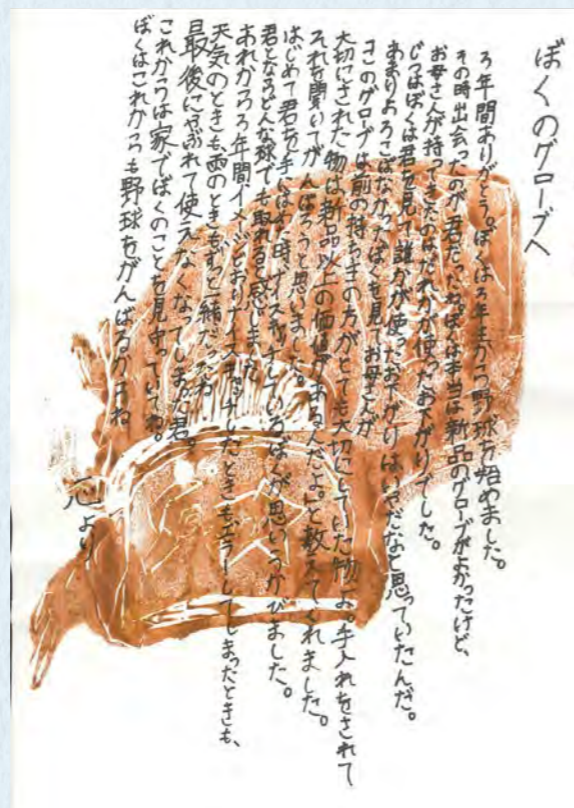 ぼくのグローブへ
3年間ありがとう。ぼくは3年生から野球を始めました。
その時出会ったのが君だったね。ぼくは本当は新品のグローブがよかったけど、
お母さんが持ってきたのはだれかが使ったお下がりでした。
じつはぼくは君を見て誰かが使ったお下がりはいやだなと思っていたんだ。
あまりよろこばなかったぼくを見てお母さんが
「このグローブは前の持ち主の方がとても大切にしていた物よ。手入れをされて
大切にされた物は新品以上の価値があるんだよ。」と教えてくれました。
それを聞いてがんばろうと思いました。
はじめて君を手にはめた時、ナイスキャッチしているぼくが思いうかびました。
君とならどんな球でも取れると感じました。
あれから3年間イメージどおりナイスキャッチしたときもエラーしてしまったときも、
天気のときも雨のときもずっと一緒だったね
最後にやぶれて使えなくなってしまった君。
これからは家でぼくのことを見守っていてね。
ぼくはこれからも野球をがんばるからね
より